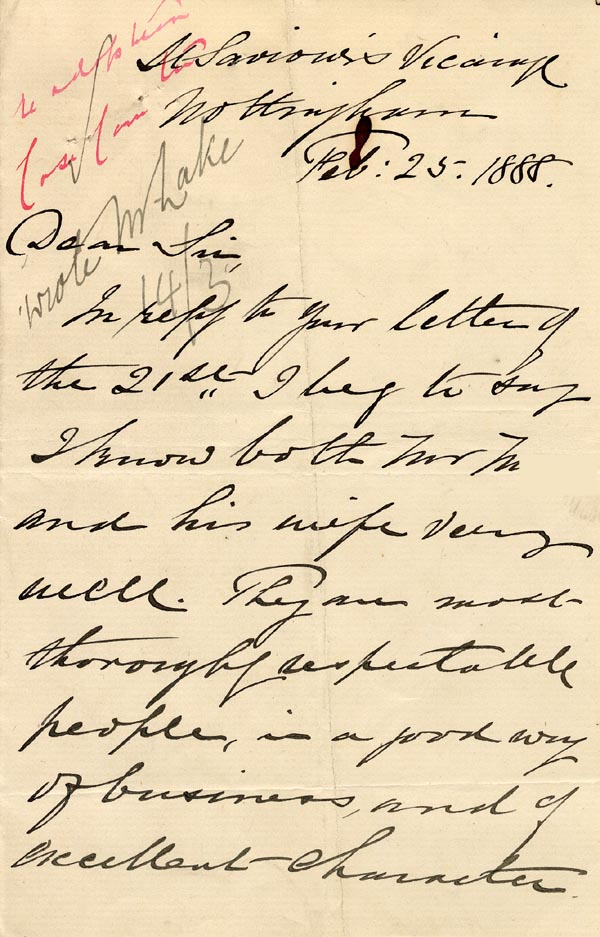 re adoption
Case Com tee
wrote Mr Lake
14/3
St Saviour's Vicarage
Nottingham
Feb: 25. 1888.
Dear Sir,
In reply to your letter of
the 21st I beg to say
I know both Mr M
and his wife very
well. They are most
thoroughly respectable
people, in a good way
of business, and of
excellent character.